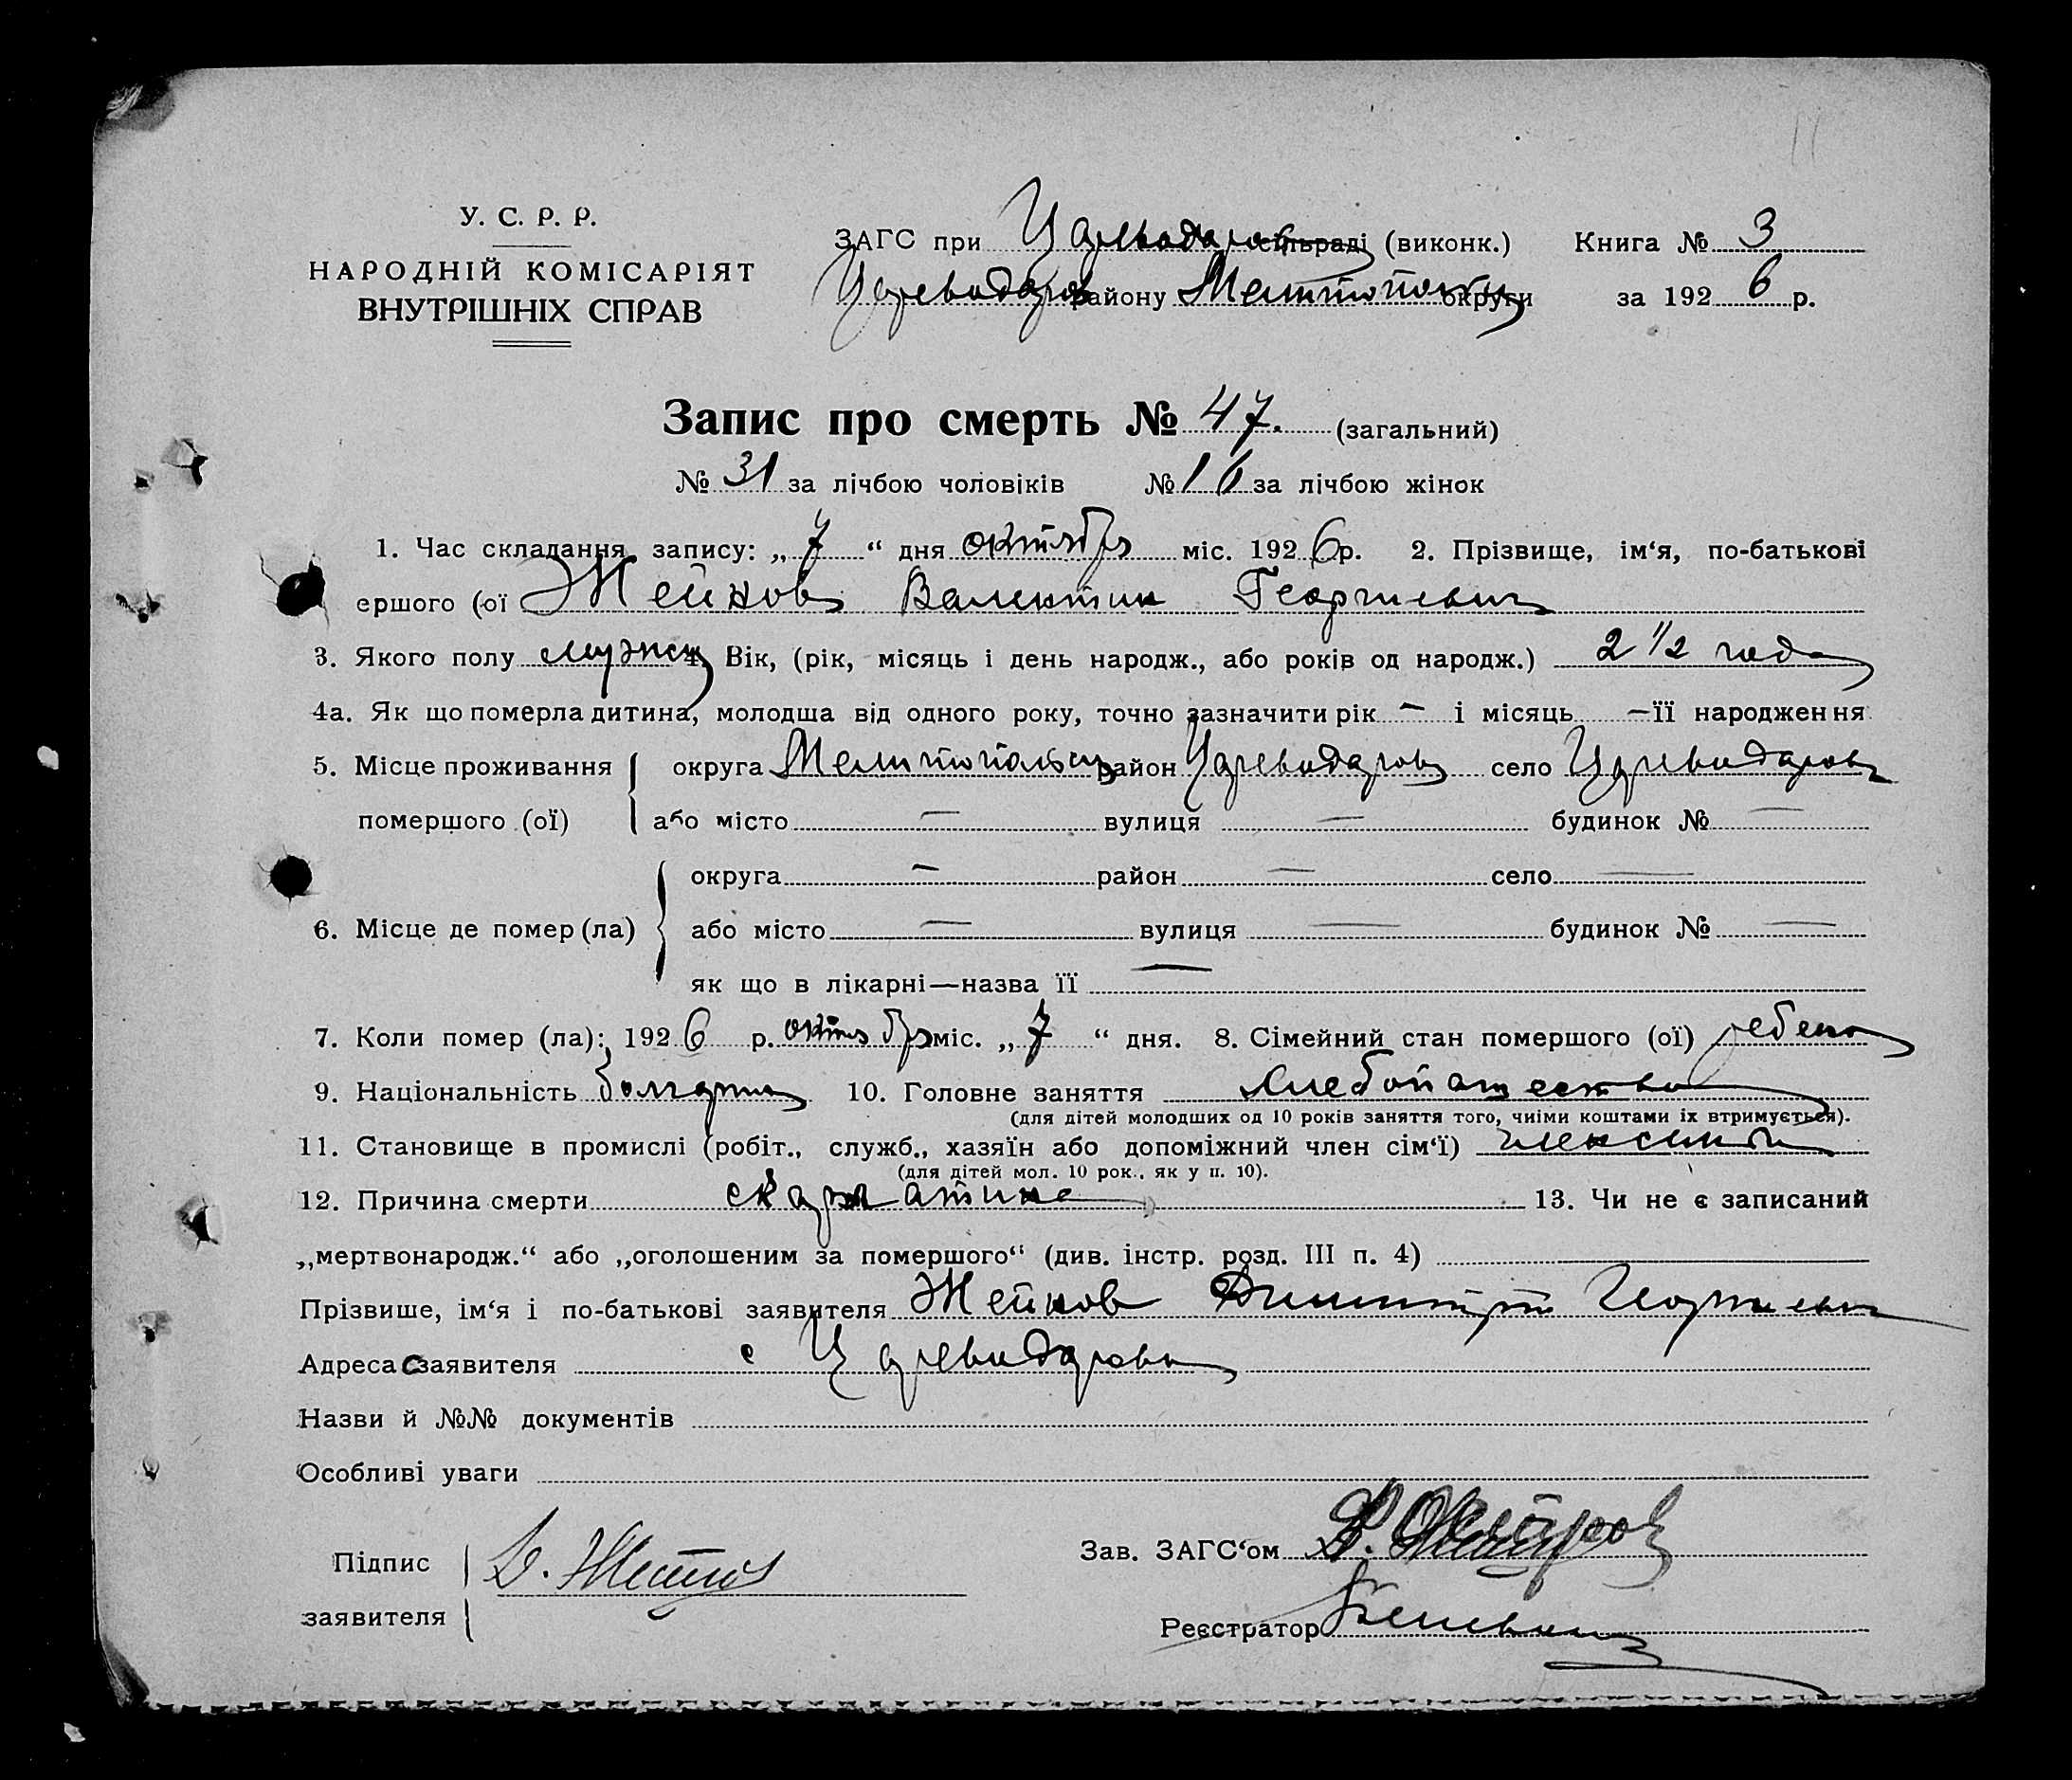 У. С. Р. Р.
НАРОДНІЙ КОМІСАРІЯТ
ВНУТРІШНІХ СПРАВ
ЗАГС при Цареводаров сільраді (виконк.) Книга № 3
Цареводаров району Мелитополь округи за 1926 р.
Запис про смерть № 47. (загальний)
№ 31 за лічбою чоловіків № 16 за лічбою жінок
1. Час складання запису: „ 7 “ дня октября міс. 1926 р. 2. Прізвище, ім‘я, по-батькові
ершого (ої Жейнов Валентин Георгиевич
3. Якого полу мужск 4. Вік, (рік, місяць і день народж., або років од народж.) 2 1/2 года
4а. Як що померла дитина, молодша від одного року, точно зазначити рік — і місяць — її народження
5. Місце проживання округа Мелитопольск район Цареводаров село Цареводаров
помершого (ої) або місто — вулиця — будинок № —
округа — район — село —
6. Місце де помер (ла) або місто — вулиця — будинок № —
як що в лікарні—назва її —
7. Коли помер (ла): 1926 р. октября міс. „ 7 “ дня. 8. Сімейний стан помершого (ої) ребенок
9. Національність болгарин 10. Головне заняття хлебопашество
(для дітей молодших од 10 років заняття того, чиїми коштами їх втримується).
11. Становище в промислі (робіт., служб., хазяїн або допоміжний член сім‘ї) член семьи
(для дітей мол. 10 рок., як у п. 10).
12. Причина смерти скарлатина 13. Чи не є записаний
„мертвонародж.“ або „оголошеним за помершого“ (див. інстр. розд. III п. 4)
Прізвише, ім‘я і по-батькові заявителя Жейнов Димитрий Георгиевич
Адреса заявителя с Цареводаровка
Назви й №№ документів
Особливі уваги
Підпис заявителя Д. Жейнов
Зав. ЗАГС‘ом
Реєстратор